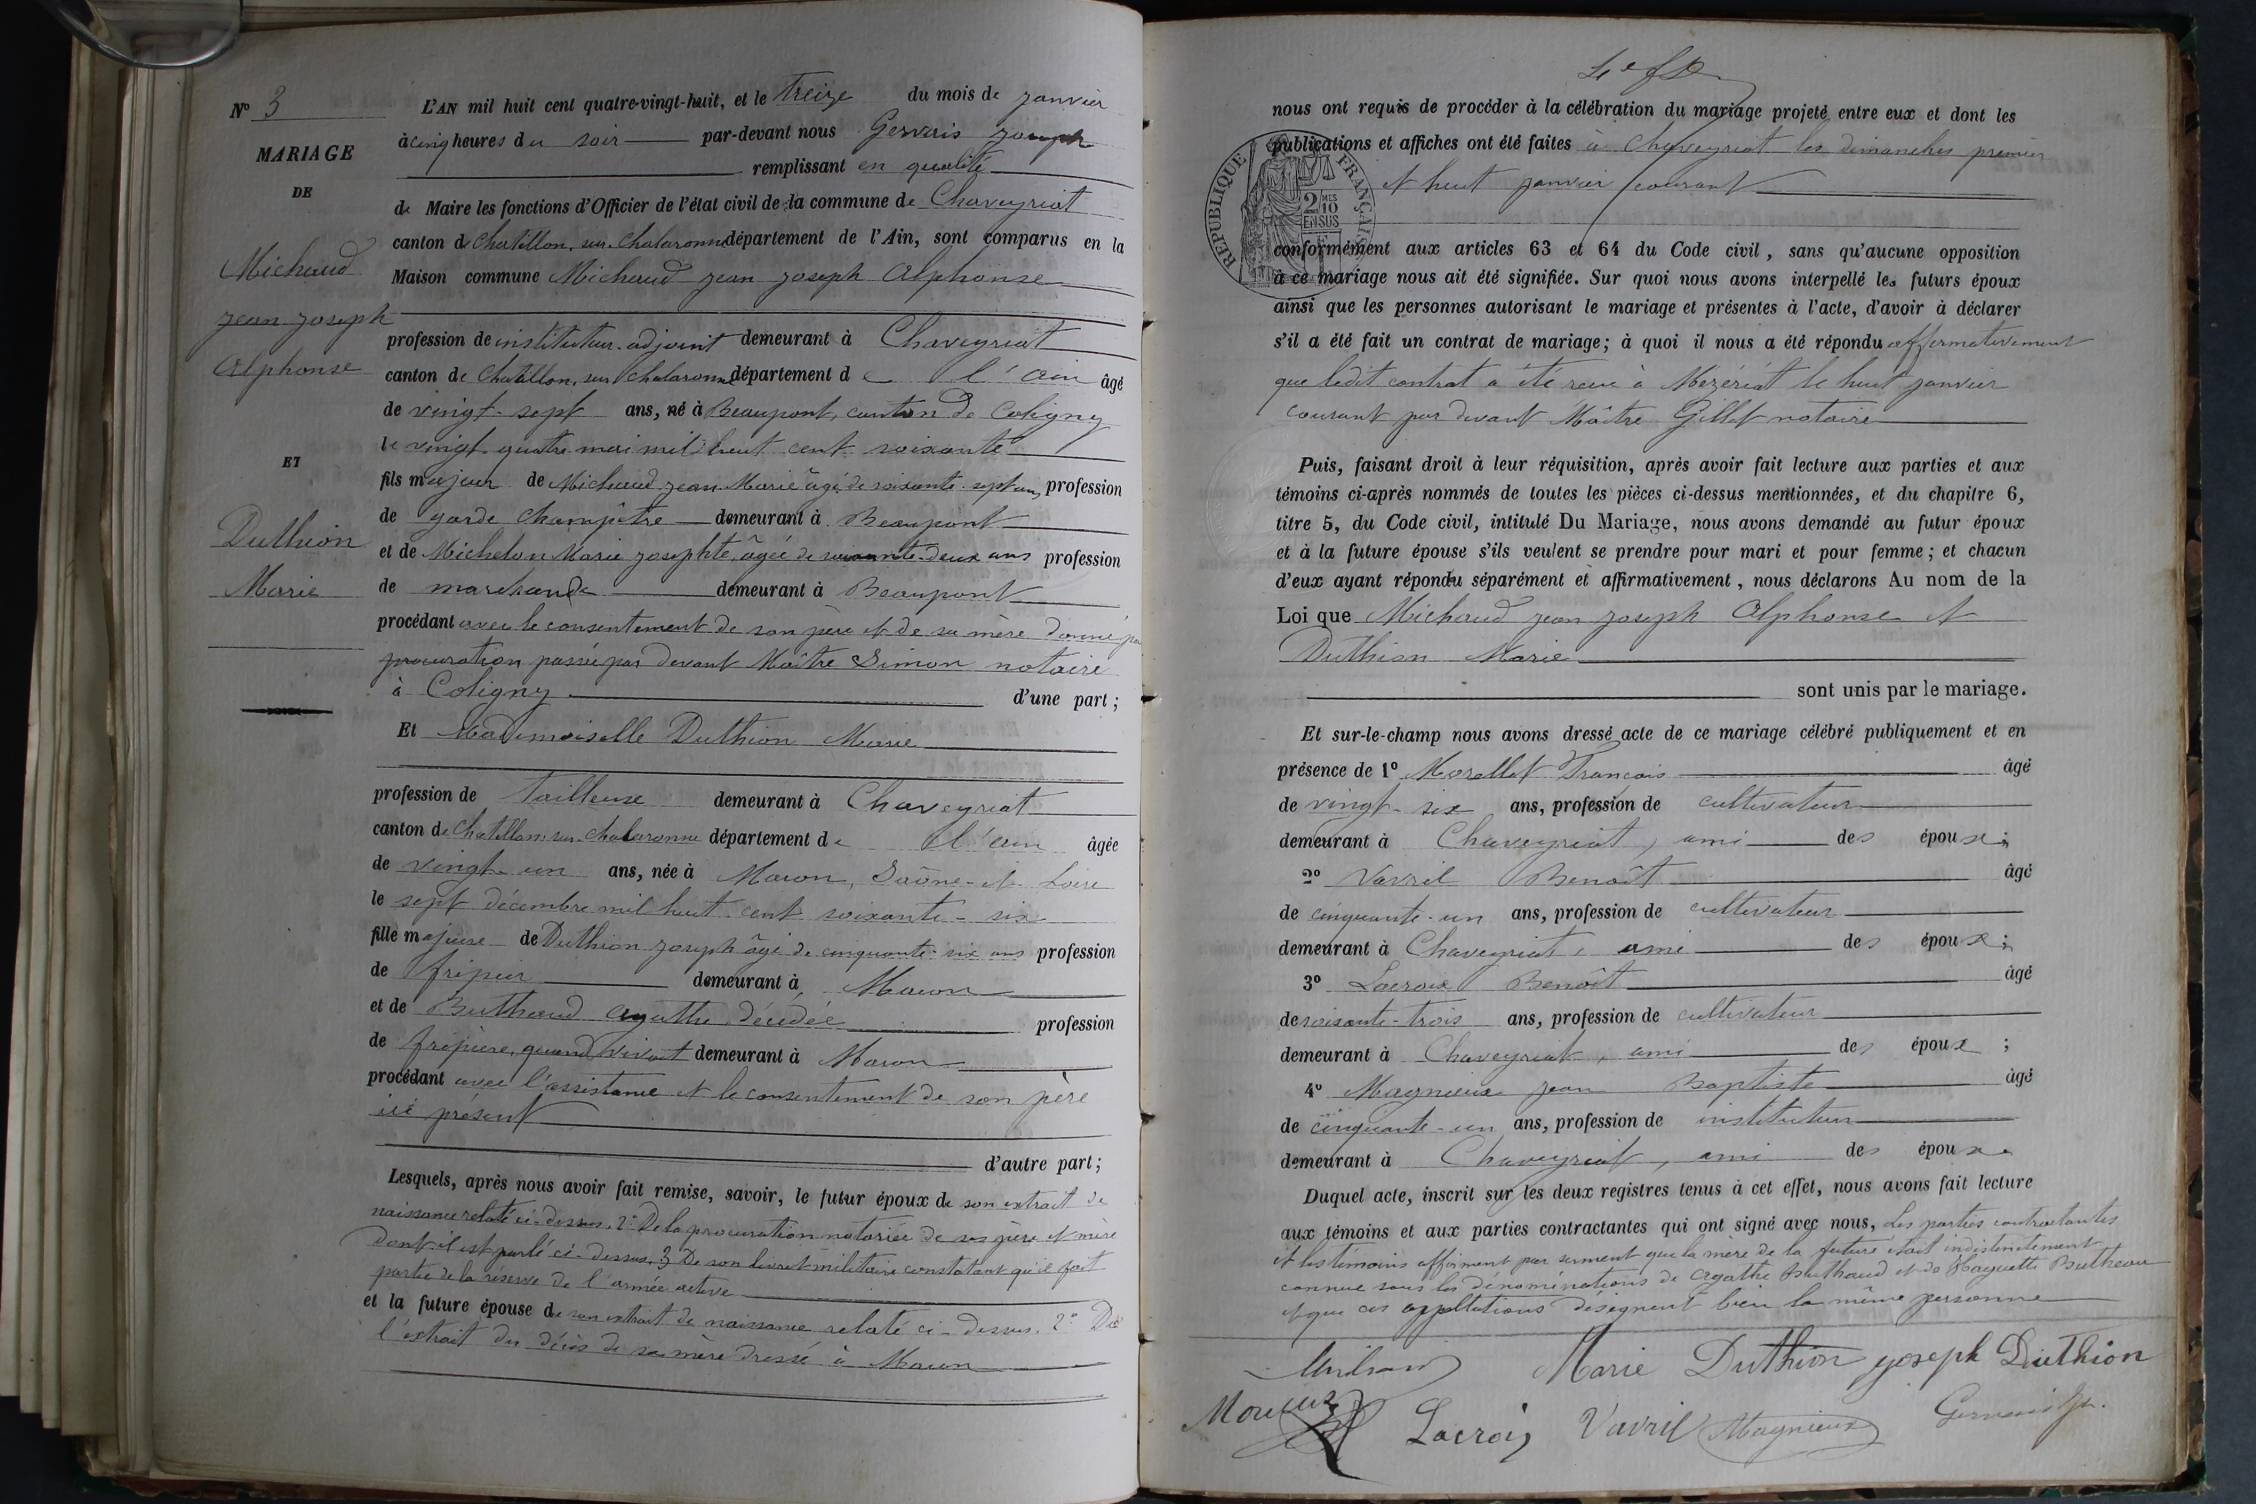 N° 3
MARIAGE
DE
Michaud
jean joseph
Alphonse
ET
Duthion
Marie
L'AN mil huit cent quatre-vingt-huit, et le treize du mois de janvier
à cinq heures du soir par-devant nous Gervais joseph
remplissant en qualité
de Maire les fonctions d'Officier de l'état civil de la commune de Chaveyriat
canton de Chatillon, sur, Chalaronne département de l'Ain, sont comparus en la
Maison commune Michaud jean joseph Alphonse
profession de instituteur-adjoint demeurant à Chaveyriat
canton de Chatillon, sur Chalaronne département de l'ain âgé
de vingt-sept ans, né à Beaupont, canton de Coligny
le vingt-quatre mai mil huit cent soixante
fils majeur de Michaud jean-Marie âgé de soixante-sept ans, profession
de garde champêtre demeurant à Beaupont
et de Michelon Marie josephte, âgée de soixante-deux ans profession
de marchande demeurant à Beaupont
procédant avec le consentement de son père et de sa mère donné par
procuration passée par devant Maître Simon notaire
à Coligny d'une part ;
Et Mademoiselle Duthion Marie
profession de tailleuse demeurant à Chaveyriat
canton de Chatillon sur-Chalaronne département de l'ain âgée
de vingt-un ans, née à Macon, Saône-et-Loire
le sept décembre mil huit-cent soixante-six
fille majeure de Duthion joseph âgé de cinquante-six ans profession
de fripier demeurant à Macon
et de Buthaud agathe décédée profession
de fripière, quand vivait demeurant à Macon
procédant avec l'assistance et le consentement de son père
ici présent
d'autre part ;
Lesquels, après nous avoir fait remise, savoir, le futur époux de son extrait de
naissance relaté ci-dessus. 2° De la procuration notariée de ses père et mère
dont il est parlé ci-dessus. 3 De son livret militaire constatant qu'il fait
partie de la réserve de l'armée active
et la future épouse de son extrait de naissance relaté ci-dessus. 2° De
l'extrait du décès de sa mère dressé à Macon
nous ont requis de procéder à la célébration du mariage projeté entre eux et dont les
publications et affiches ont été faites à Chaveyriat les dimanches premier
et huit janvier courant
RÉPUBLIQUE FRANÇAISE
2 MES
10
EN SUS
conformément aux articles 63 et 64 du Code civil, sans qu'aucune opposition
à ce mariage nous ait été signifiée. Sur quoi nous avons interpellé les futurs époux
ainsi que les personnes autorisant le mariage et présentes à l'acte, d'avoir à déclarer
s'il a été fait un contrat de mariage ; à quoi il nous a été répondu affermativement
que ledit contrat a été reçu à Mézériat le huit janvier
courant par devant Maître Gillet notaire
Puis, faisant droit à leur réquisition, après avoir fait lecture aux parties et aux
témoins ci-après nommés de toutes les pièces ci-dessus mentionnées, et du chapitre 6,
titre 5, du Code civil, intitulé Du Mariage, nous avons demandé au futur époux
et à la future épouse s'ils veulent se prendre pour mari et pour femme ; et chacun
d'eux ayant répondu séparément et affirmativement, nous déclarons Au nom de la
Loi que Michaud jean joseph Alphonse et
Duthion Marie
sont unis par le mariage.
Et sur-le-champ nous avons dressé acte de ce mariage célébré publiquement et en
présence de 1° Morellet François âgé
de vingt-six ans, profession de cultivateur
demeurant à Chaveyriat, ami des époux ;
2° Vavril Benoît âgé
de cinquante-un ans, profession de cultivateur
demeurant à Chaveyriat, ami des époux ;
3° Lacroix Benoît âgé
de soixante-trois ans, profession de cultivateur
demeurant à Chaveyriat, ami des époux ;
4° Magnieux jean Baptiste âgé
de cinquante-un ans, profession de instituteur
demeurant à Chaveyriat, ami des époux.
Duquel acte, inscrit sur les deux registres tenus à cet effet, nous avons fait lecture
aux témoins et aux parties contractantes qui ont signé avec nous, Les parties contractantes
et les témoins affirment par serment que la mère de la future était indistinctement
connue sous les dénominations de Agathe Buthaud et de Baguette Butheau
et que ces appellations désignent bien la même personne
Marie Duthion joseph Duthion
Lacroix Vavril Magnieux Gervais